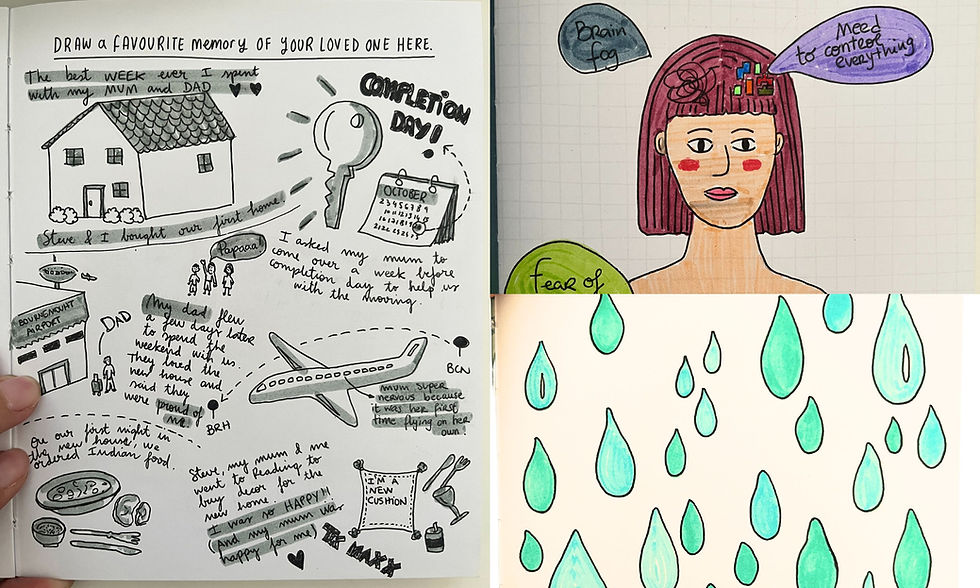 DRAW a FAVOURITE memory OF YOUR LOVED ONE HERE.
The best WEEK ever I spent
with my MUM and DAD
COMPLETION
DAY!
OCTOBER
Steve & I bought our first home.
Papaaa!
I asked my mum to
come over a week before
completion day to help us
with the moving.
BOURNEMOUTH
AIRPORT
DAD
My dad flew
a few days later
to spend the
weekend with us.
They loved the
new house and
said they
were proud of
me
BCN
BRH
mum super
nervous because
it was her first
time flying on her
own!
On our first night in
the new house, we
ordered Indian food.
Steve, my mum & me
went to Reading to
buy decor for the
new home.
I was so HAPPY!!
(And my mum was
happy for me)
I'M A
NEW
CUSHION
TK MAXX
Brain
fog
Need
to control
everything
Fear of